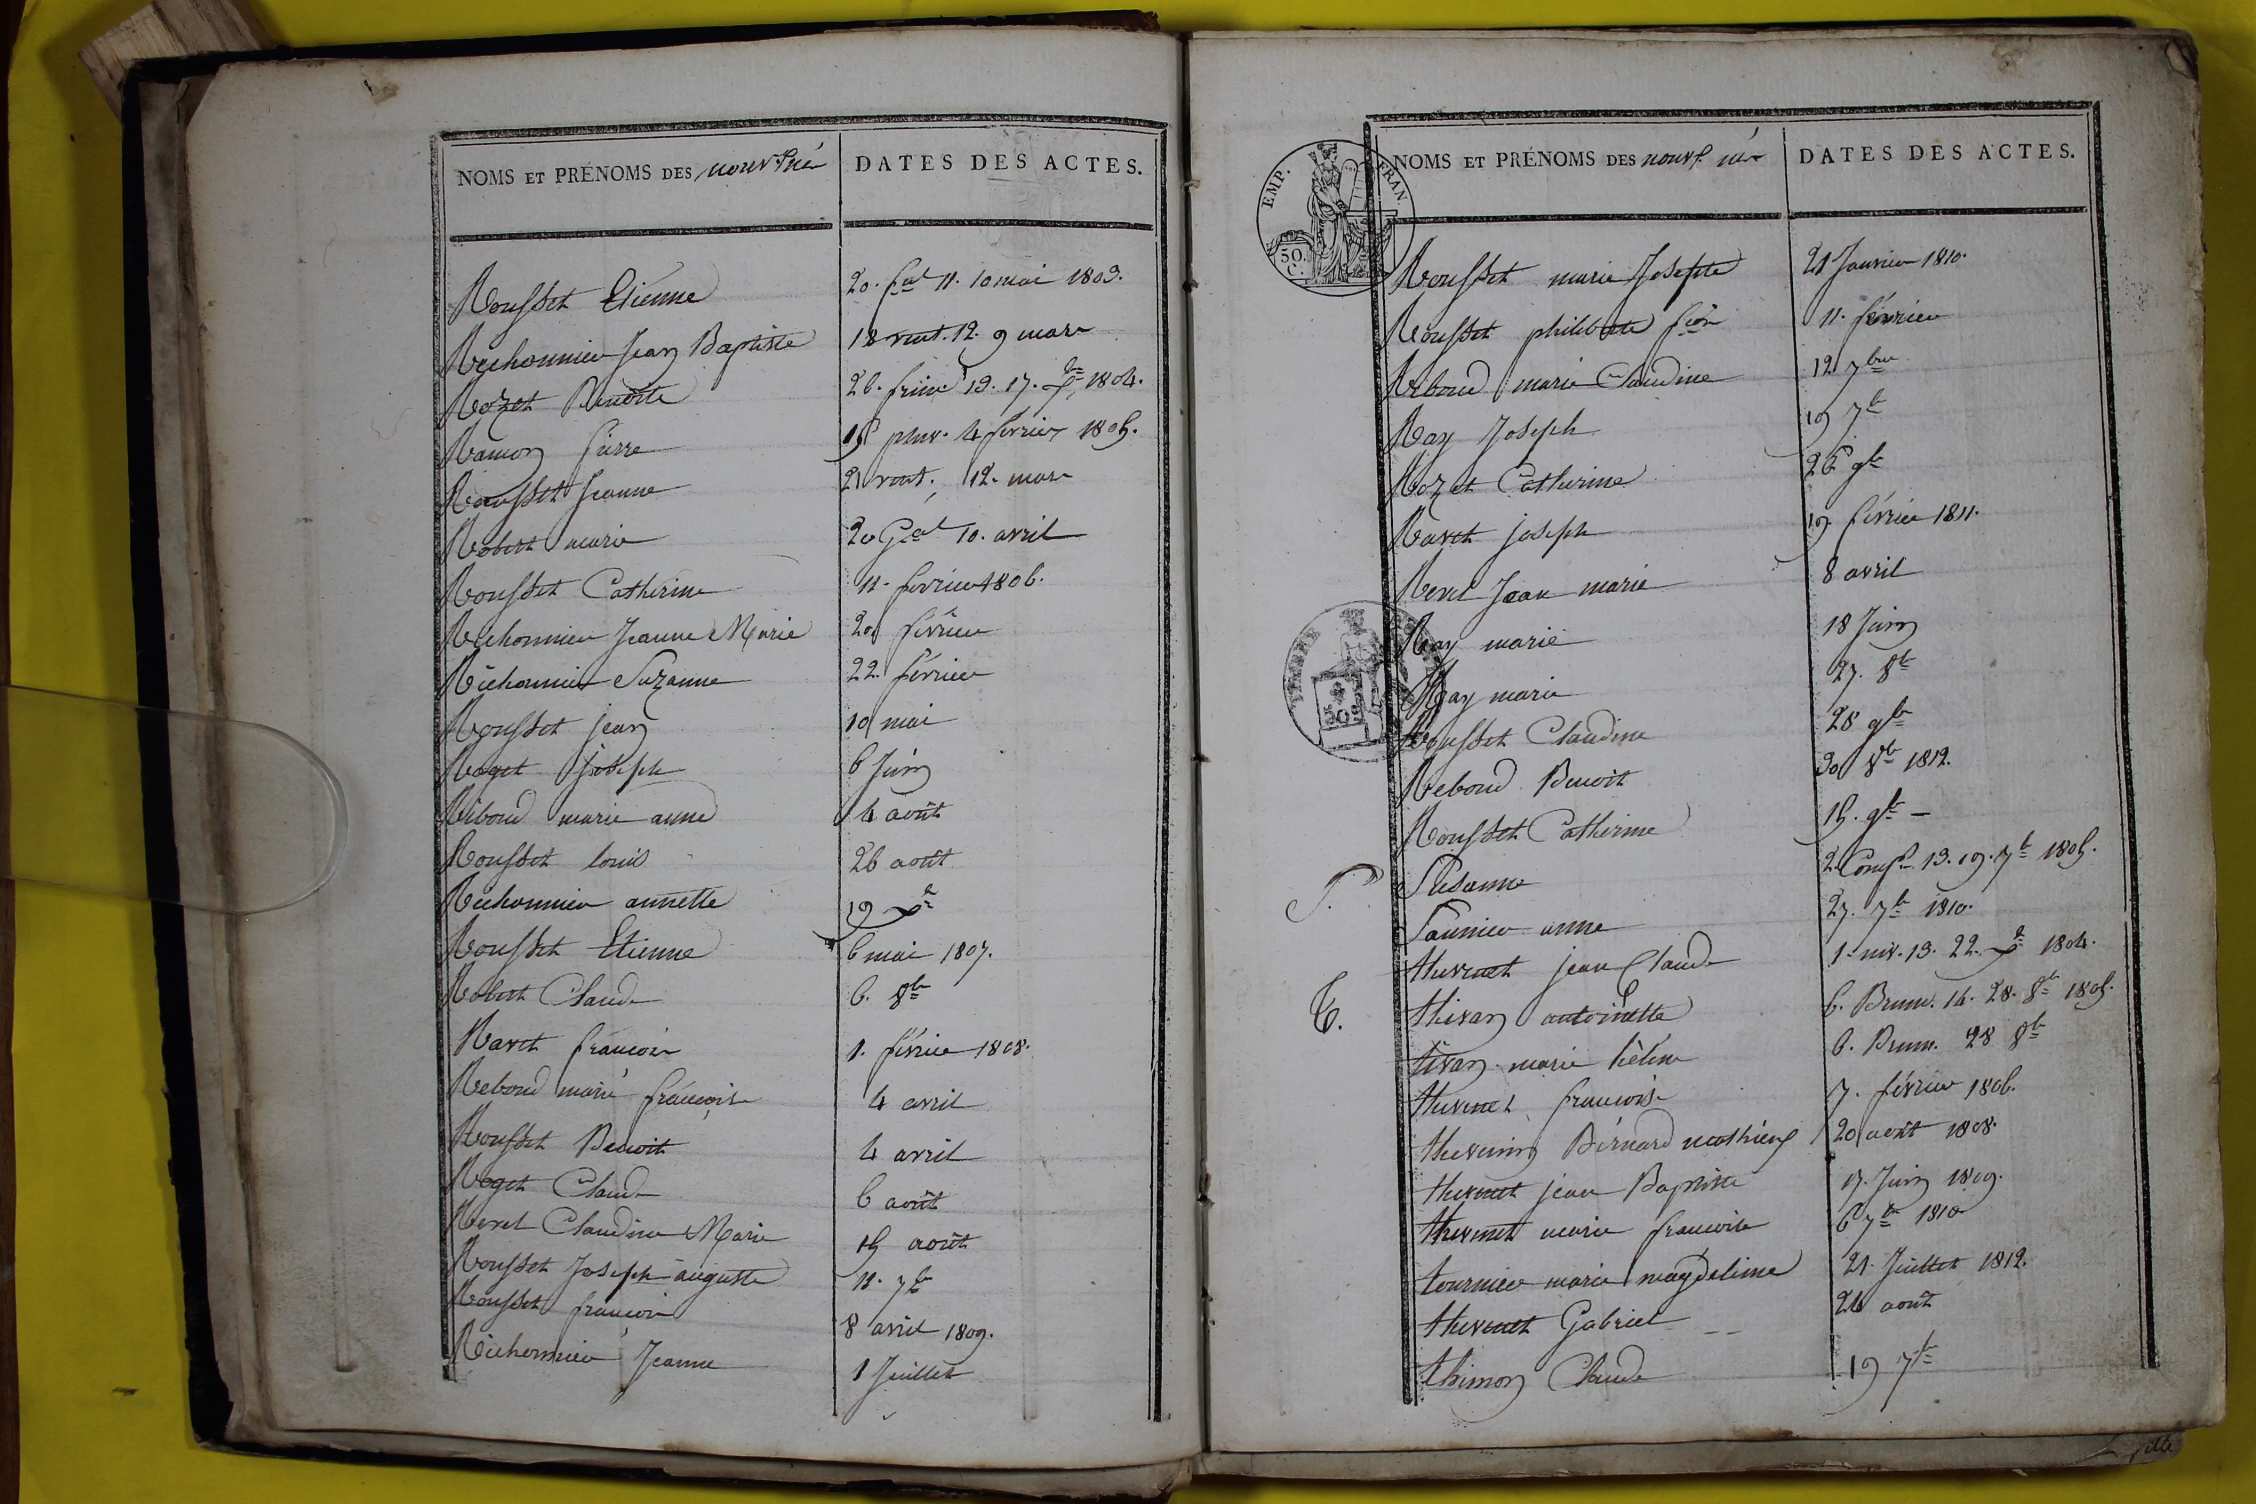 NOMS ET PRÉNOMS DES nouv. né
DATES DES ACTES.
Rousset Etienne 20. fal 11. 10 mai 1803.
Richonnier Jean Baptiste 18 vent. 12. 9 mars
Rozet Benoite 26. frime 13. 17. Xbre 1804.
Ramon pierre 15 pluv. 4 fevrier 1805.
Rousset Jeanne 21 vent. 12. mars
Robert marie 20 Gal 10. avril
Rousset Catherine 11. fevrier 1806.
Richonnier Jeanne Marie 20 février
Richonnier Suzanne 22. février
Rousset jean 10 mai
Roget joseph 6 Juin
Riboud marie anne 4 août
Rousset louis 26 août
Richonnier annette 19 Xe
Rousset Etienne 6 mai 1807.
Robert Claude 6. 8bre
Ravet francois 1. février 1808.
Reboud marie francoise 4 avril
Rousset Benoit 4 avril
Roget Claude 6 août
Revel Claudine Marie 15 août
Rousset Joseph auguste 11. 7bre
Rousset francois 8 avril 1809.
Richonnier Jeanne 1 Juillet
EMP. FRAN
50. C.
NOMS ET PRÉNOMS DES nouv. né
DATES DES ACTES.
Rousset marie Josephte 21 Janvier 1810.
Rousset philiberte 11. février
Reboud marie Claudine 12 7bre
Ray Joseph 19 7bre
Rozet Catherine 26 9bre
Ravet joseph 19. février 1811.
Revel Jean marie 8 avril
Ray marie 18 Juin
Ray marie 27. 8bre
Rousset Claudine 28 9bre
Reboud Benoit 30 8bre 1812.
Rousset Catherine 15. 9bre –
S. Susanne 2 Comp. 13. 19. 7bre 1805.
Saunier anne 27. 7bre 1810.
thevenet jean Claude 1. niv. 13. 22. Xe 1804.
T. thivan antoinette 6. Brum. 14. 28. 8bre 1805.
tivan marie hélène 6. Brum. 28 8bre
thevenet francoise 7. février 1806.
thevenin Bernard mathieu 20 août 1808.
thevenet jean Baptiste 17. Juin 1809.
thevenet marie francoise 6 7bre 1810
tournier marie magdeleine 21. Juillet 1812.
thevenet Gabriel 24 août
thimon Claude 19 7bre